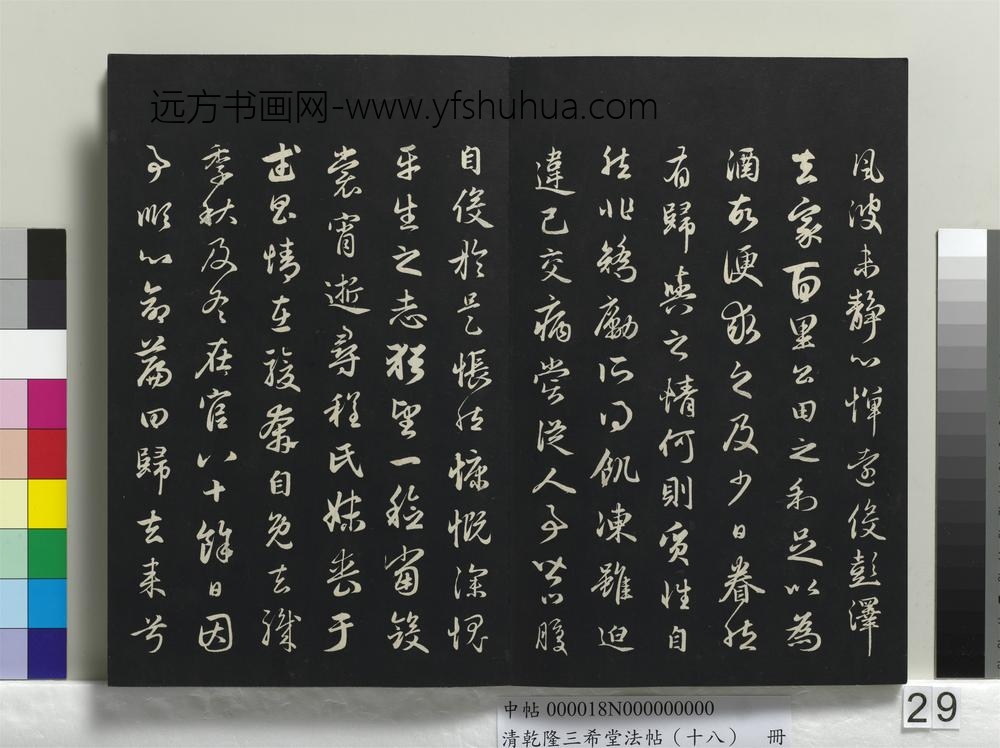 远方书画网-www.yfshuhua.com
風波未静心憚遠役彭澤
去家百里公田之利足以為
酒故便求之及少日眷然
有歸與之情何則質性自
然非矯勵所得飢凍雖迫
違己交病嘗從人事皆口腹
自役於是悵然慷慨深愧
平生之志猶望一稔當斂
裳宵逝尋程氏妹喪于
武昌情在駿奔自免去職
季秋及冬在官八十餘日因
事順心命篇曰歸去来兮
29
中帖 000018N000000000
清乾隆三希堂法帖（十八） 冊